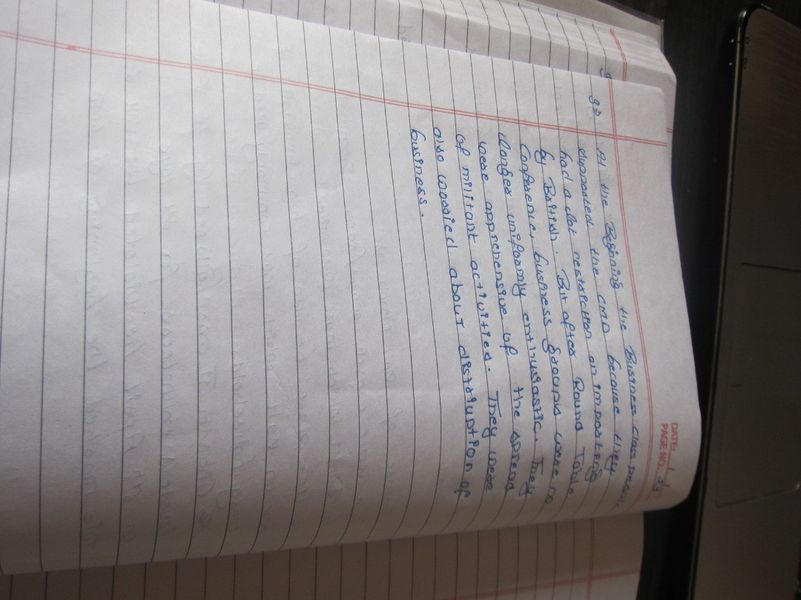 DATE:
PAGE NO.:
At the Beginning the Business class
supported the CMD because they
had a lot restriction on importing
by British. But after Round Table
Conference, business groups were no
longer uniformly enthusiastic. They
were apprehensive of the spread
of militant activities. They were
also worried about distruption of
business.